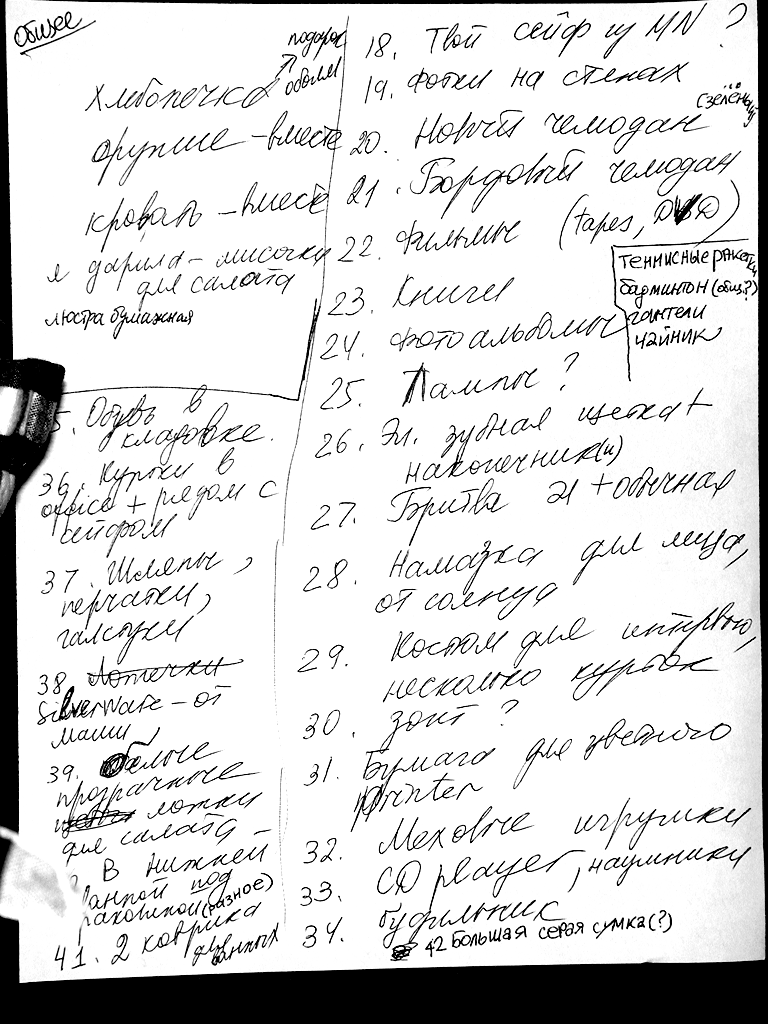 общее
подарок
обоим
хлебопечка
оружие - вместе
кровать - вместе
я дарила - мисочки
для салата
люстра бумажная
35. Обувь в
кладовке.
36. Куртки в
office + рядом с
сейфом
37. Шляпы,
перчатки,
галстуки
38 Лоточки
SilverWare - от
мамы
39. белые
прозрачные
лотки
для салата
В нижней
ванной под
раковиной (разное)
41. 2 коврика
для
ванных
18. Твой сейф из MN ?
19. Фотки на стенах
(зелёный)
20. Новый чемодан
21. Бордовый чемодан
22. Фильмы (tapes, DVD)
теннисные ракетки
бадминтон (общ?)
гантели
чайник
23. Книги
24. Фотоальбомы
25. Лампы ?
26. Эл. зубная щетка +
наконечник(и)
27. Бритва эл + обычная
28. Намазка для лица,
от солнца
29. Костюм для интервью,
несколько курток
30. Зонт ?
31. Бумага для цветного
printer
32. Меховые игрушки
33. CD player, наушники
34. будильник
42 Большая серая сумка (?)